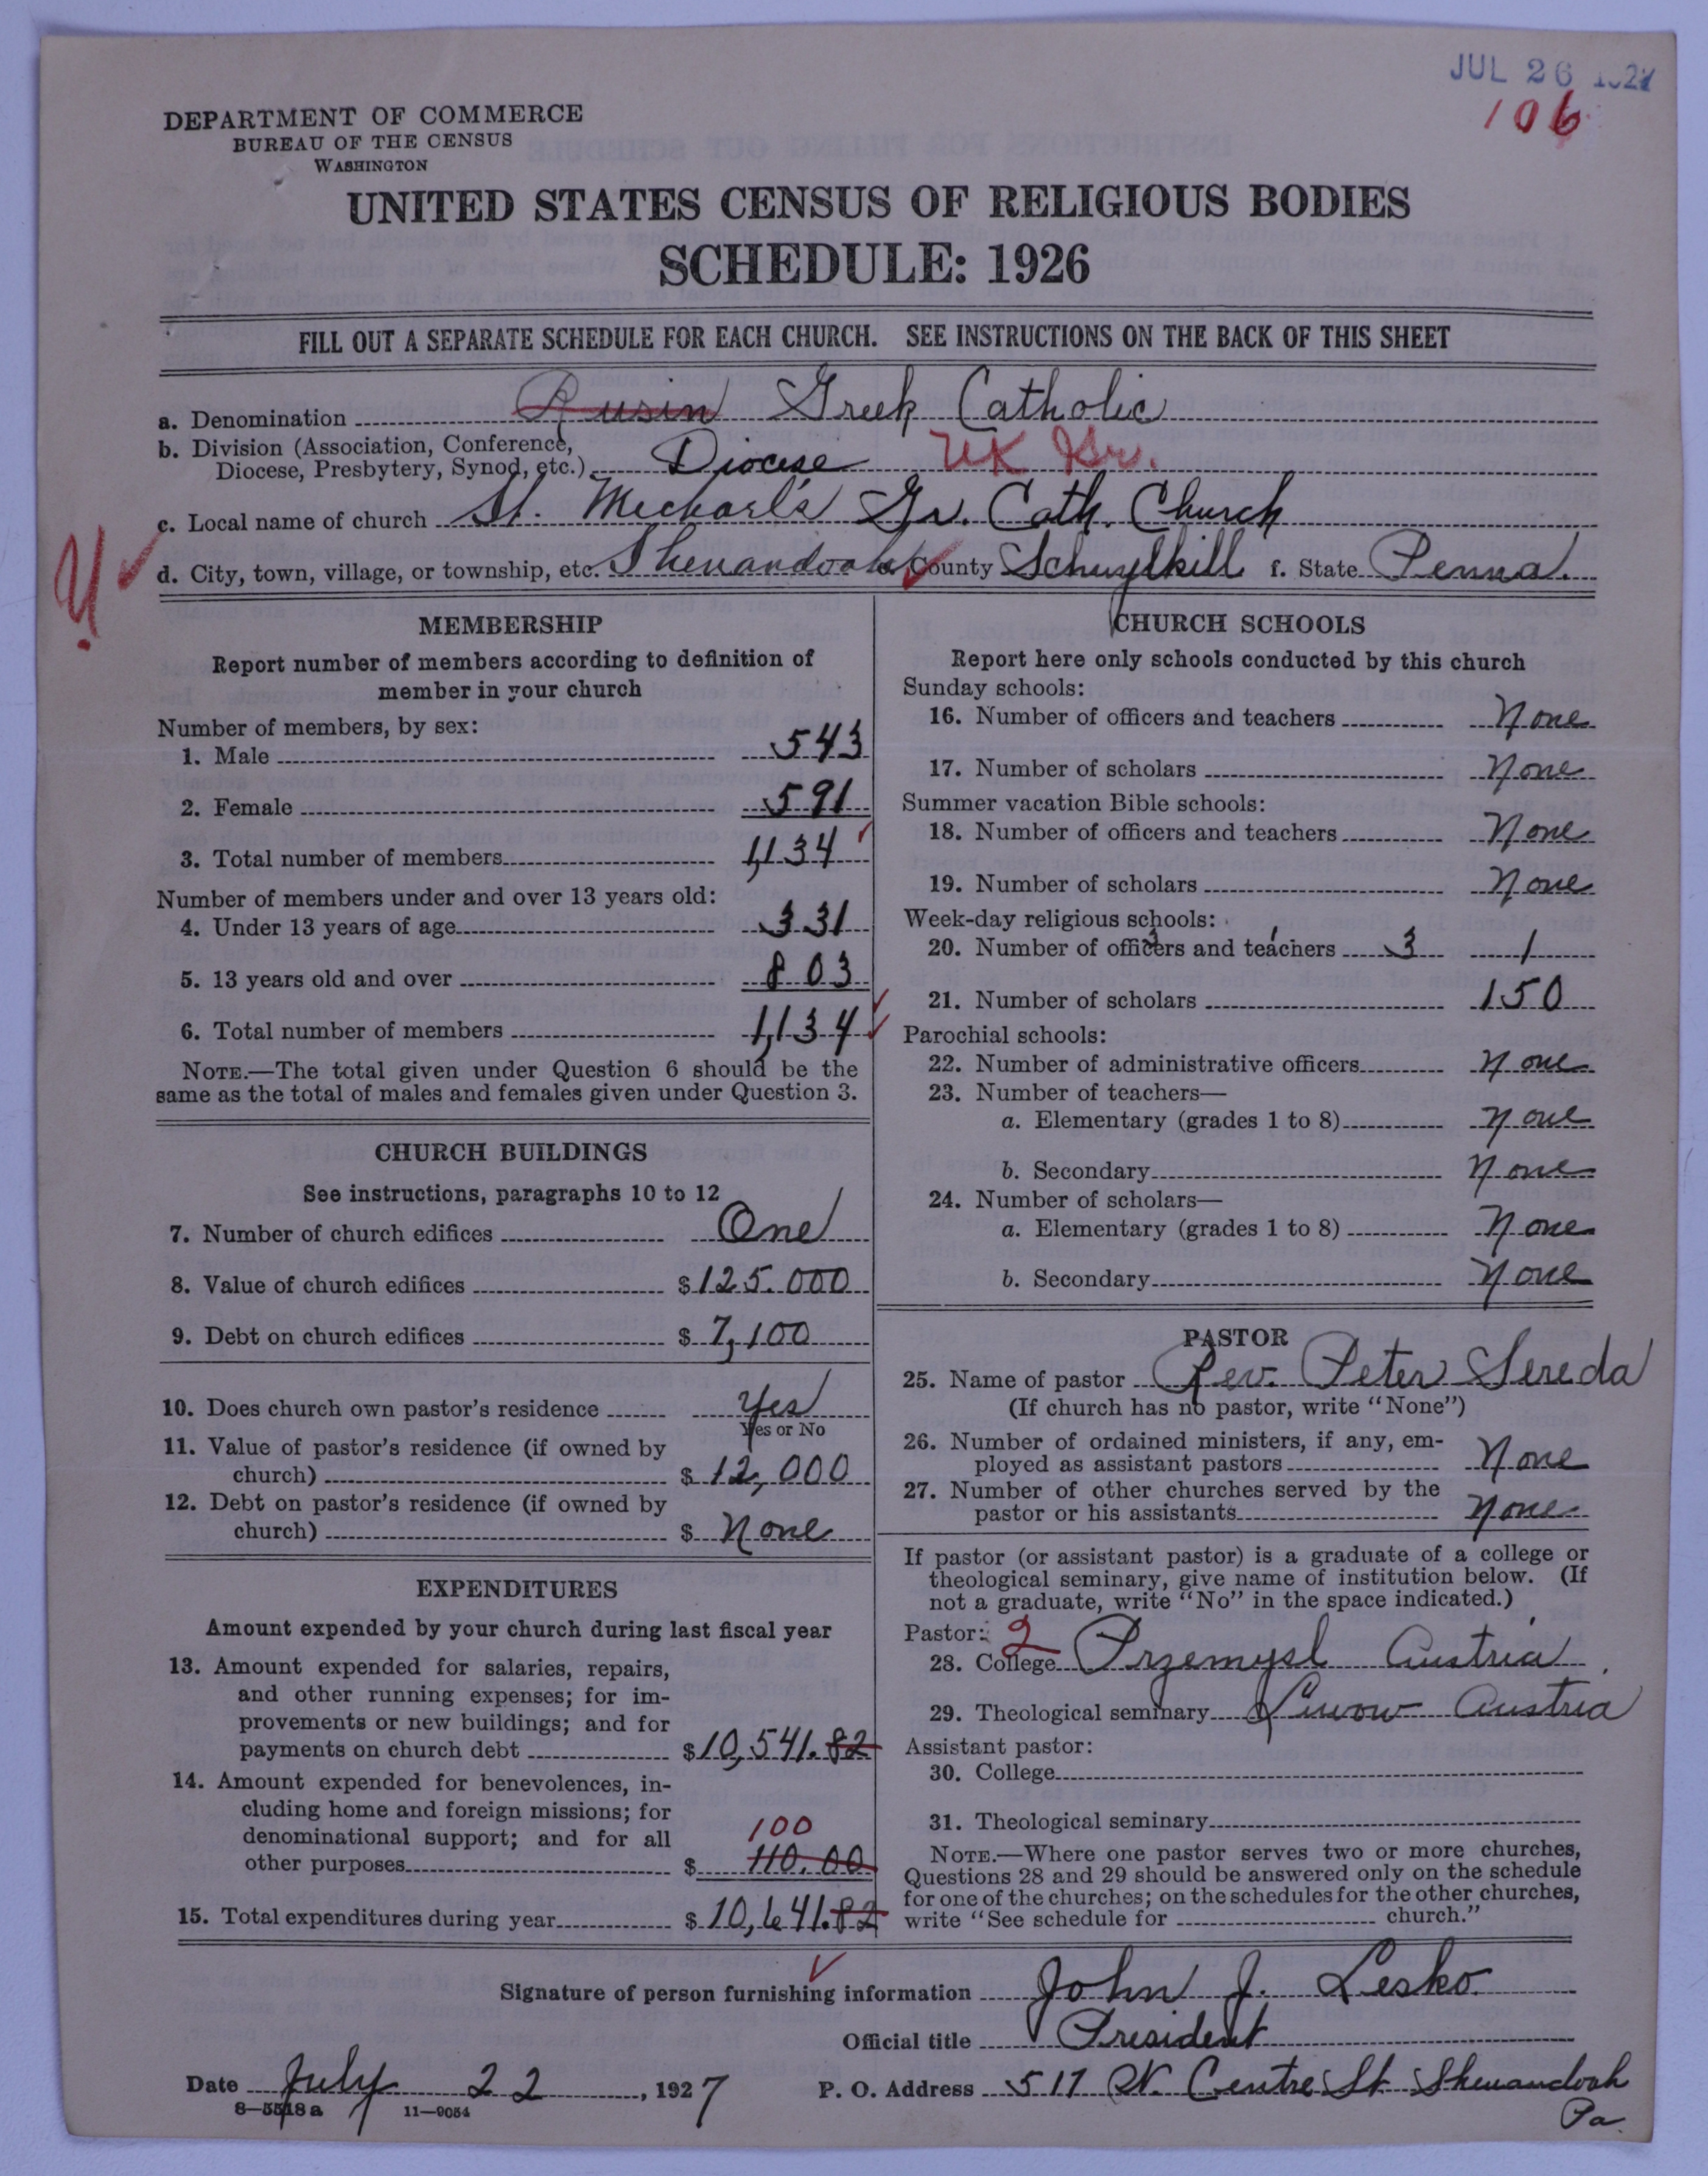 JUL 26 1927
106
DEPARTMENT OF COMMERCE
BUREAU OF THE CENSUS
WASHINGTON
UNITED STATES CENSUS OF RELIGIOUS BODIES
SCHEDULE: 1926
FILL OUT A SEPARATE SCHEDULE FOR EACH CHURCH. SEE INSTRUCTIONS ON THE BACK OF THIS SHEET
a. Denomination Rusin Greek Catholic
b. Division (Association, Conference,
Diocese, Presbytery, Synod, etc.) Diocese UK Gr.
c. Local name of church St. Michael's Gr. Cath. Church
d. City, town, village, or township, etc. Shenandoah e. County Schuylkill f. State Penna.
MEMBERSHIP
Report number of members according to definition of
member in your church
Number of members, by sex:
1. Male 543
2. Female 591
3. Total number of members 1,134
Number of members under and over 13 years old:
4. Under 13 years of age 331
5. 13 years old and over 803
6. Total number of members 1,134
NOTE.—The total given under Question 6 should be the
same as the total of males and females given under Question 3.
CHURCH BUILDINGS
See instructions, paragraphs 10 to 12
7. Number of church edifices One
8. Value of church edifices $125.000
9. Debt on church edifices $7,100
10. Does church own pastor's residence Yes
Yes or No
11. Value of pastor's residence (if owned by
church) $12,000
12. Debt on pastor's residence (if owned by
church) $ None
EXPENDITURES
Amount expended by your church during last fiscal year
13. Amount expended for salaries, repairs,
and other running expenses; for im-
provements or new buildings; and for
payments on church debt $10,541.82
14. Amount expended for benevolences, in-
cluding home and foreign missions; for
denominational support; and for all 100
other purposes $ 110.00
15. Total expenditures during year $10,641.82
CHURCH SCHOOLS
Report here only schools conducted by this church
Sunday schools:
16. Number of officers and teachers None
17. Number of scholars None
Summer vacation Bible schools:
18. Number of officers and teachers None
19. Number of scholars None
Week-day religious schools:
20. Number of officers and teachers 3 1
21. Number of scholars 150
Parochial schools:
22. Number of administrative officers None
23. Number of teachers—
a. Elementary (grades 1 to 8) None
b. Secondary None
24. Number of scholars—
a. Elementary (grades 1 to 8) None
b. Secondary None
PASTOR
25. Name of pastor Rev. Peter Sereda
(If church has no pastor, write "None")
26. Number of ordained ministers, if any, em-
ployed as assistant pastors None
27. Number of other churches served by the
pastor or his assistants None
If pastor (or assistant pastor) is a graduate of a college or
theological seminary, give name of institution below. (If
not a graduate, write "No" in the space indicated.)
Pastor: 2
28. College Przemysl Austria
29. Theological seminary Lwow Austria
Assistant pastor:
30. College
31. Theological seminary
NOTE.—Where one pastor serves two or more churches,
Questions 28 and 29 should be answered only on the schedule
for one of the churches; on the schedules for the other churches,
write "See schedule for church."
Signature of person furnishing information John J. Lesko
Official title President
Date July 22, 1927 P. O. Address 517 N. Centre St Shenandoah
Pa.
8—5518a 11—9054